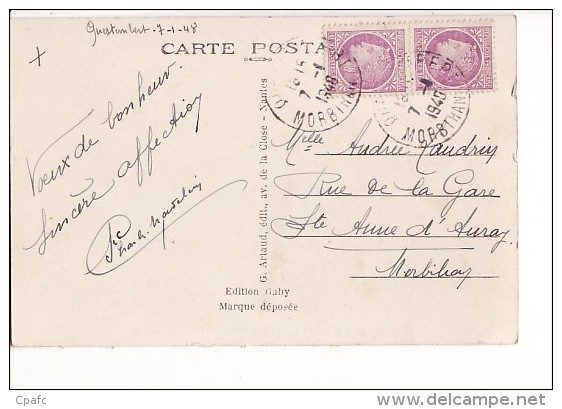 Questembert - 7-1-48
CARTE POSTA
Vœux de bonheur.
Sincère affection
18 15
7 -1
1948
MORBIHAN
7 -1
1948
MORBIHAN
Melle Andrée
Rue de la Gare
Ste Anne d'Auray
Morbihan
G. Artaud, édit., av. de la Close - Nantes
Edition Gaby
Marque déposée
Cpafc
delcampe.net